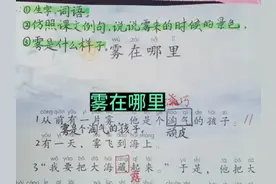 ①生字、词语
②仿照课文例句,说说雾来的时候的景色。
③雾是什么样子
雾在哪里
雾在哪里
1从前有一片雾,他是个淘气的孩子。11
雾是个淘气的孩子。
顽皮
2有一天,雾飞到海上。
3“我要把大海藏起来。”于是,他把大